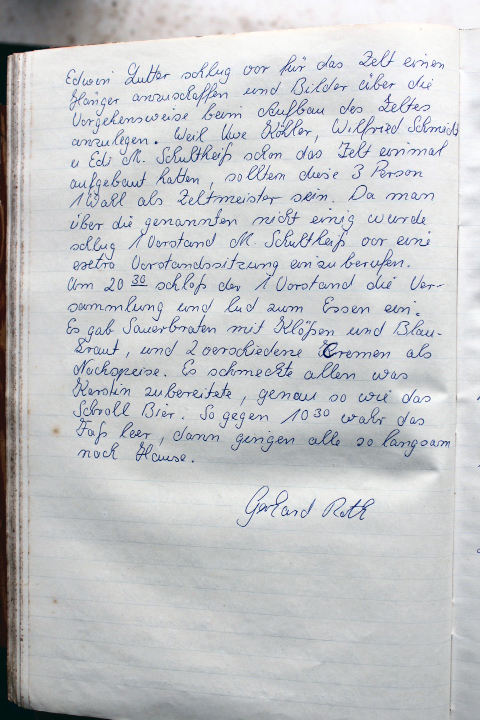 Edwin Lutter schlug vor für das Zelt einen
Hänger anzuschaffen und Bilder über die
Vorgehensweise beim Aufbau des Zeltes
anzulegen. Weil Uwe Köhler, Wilfried Schmidt
u Edi M. Schultheiß schon das Zelt einmal
aufgebaut hatten, sollten diese 3 Person
1 Wahl als Zeltmeister sein. Da man
über die genannten nicht einig wurde
schlug 1 Vorstand M. Schultheiß vor eine
exetra Vorstandssitzung einzuberufen.
Um 20 30 schloß der 1 Vorstand die Ver-
sammlung und lud zum Essen ein.
Es gab Sauerbraten mit Klößen und Blau-
kraut, und 2 verschiedene Cremen als
Nachspeise. Es schmeckte allen was
Kerstin zubereitete, genau so wie das
Schroll Bier. So gegen 10 30 wahr das
Faß leer, dann gingen alle so langsam
nach Hause.
Gerhard Roth